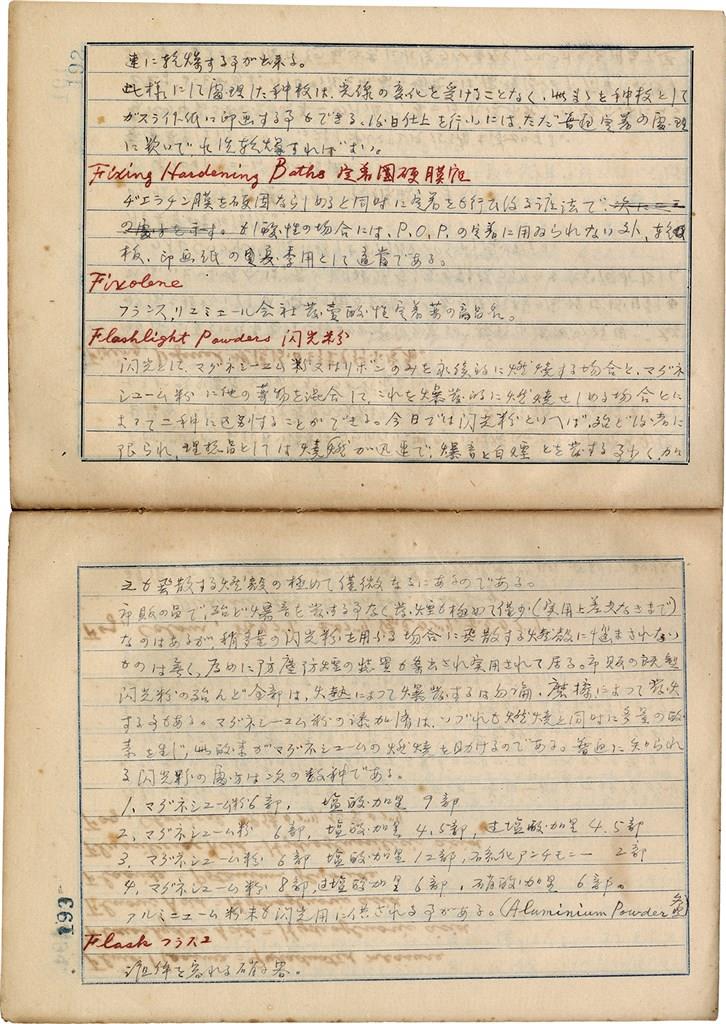 192
速に乾燥する事が出来る。
此様にして處理した種板は、光線の変化を受けることなく、此まゝを種板として
ガスライト紙に印画する事ができる、後日仕上を行ふには、ただ普通定着の處理
に次いで水洗乾燥すればよい。
Fixing Hardening Baths 定着固硬膜液
ゼエラチン膜を硬固ならしめると同時に定着をも行ひ得る液法で、
酸性の場合には、P.O.P.の定着に用ゐられない外、乾板
板、印画紙の夏季用として適當である。
Fixolene
フランス、リユミエール会社発賣酸性定着薬の商品名。
Flashlight Powders 閃光粉
閃光として、マグネシユーム粉又はリボンのみを永続的に燃焼する場合と、マグネ
シユーム粉に他の薬物を混合して、これを爆発的に燃焼せしめる場合とに
よつて二種に区別することができる。今日では閃光粉といへば、殆ど後者に
限られ、理想品としては燃焼が迅速で、爆音と白煙とを発する事少く、加
之も飛散する燃殻の極めて僅微なるにあるのである。
市販の品で、殆ど爆音を発する事なく、発煙も極めて僅か(実用上差支なきまで)
なのはあるが、稍多量の閃光粉を用ふる場合に飛散する燃殻に悩まされない
ものは無く、為めに防塵防煙の装置が案出され実用されて居る。市販の
閃光粉の殆んど全部は、火熱によつて爆発するは勿論、摩擦によつて発火
する事もある。マグネシユーム粉の添加済は、いづれも燃焼と同時に多量の酸
素を生じ、此酸素がマグネシユームの燃焼を助けるのである。普通に知られ
る閃光粉の處方は次の数種である。
1. マグネシユーム粉 6部, 塩酸加里 9部
2. マグネシユーム粉 6部, 塩酸加里 4.5部, 過塩酸加里 4.5部
3. マグネシユーム粉 6部 塩酸加里 12部, 硫化アンチモニー 2部
4. マグネシユーム粉 8部, 過塩酸加里 6部, 硝酸加里 6部。
アルミニユーム粉末も閃光用に供される事がある。(Aluminium Powder 参照)
193
Flask フラスコ
液体を容れる硝子器。